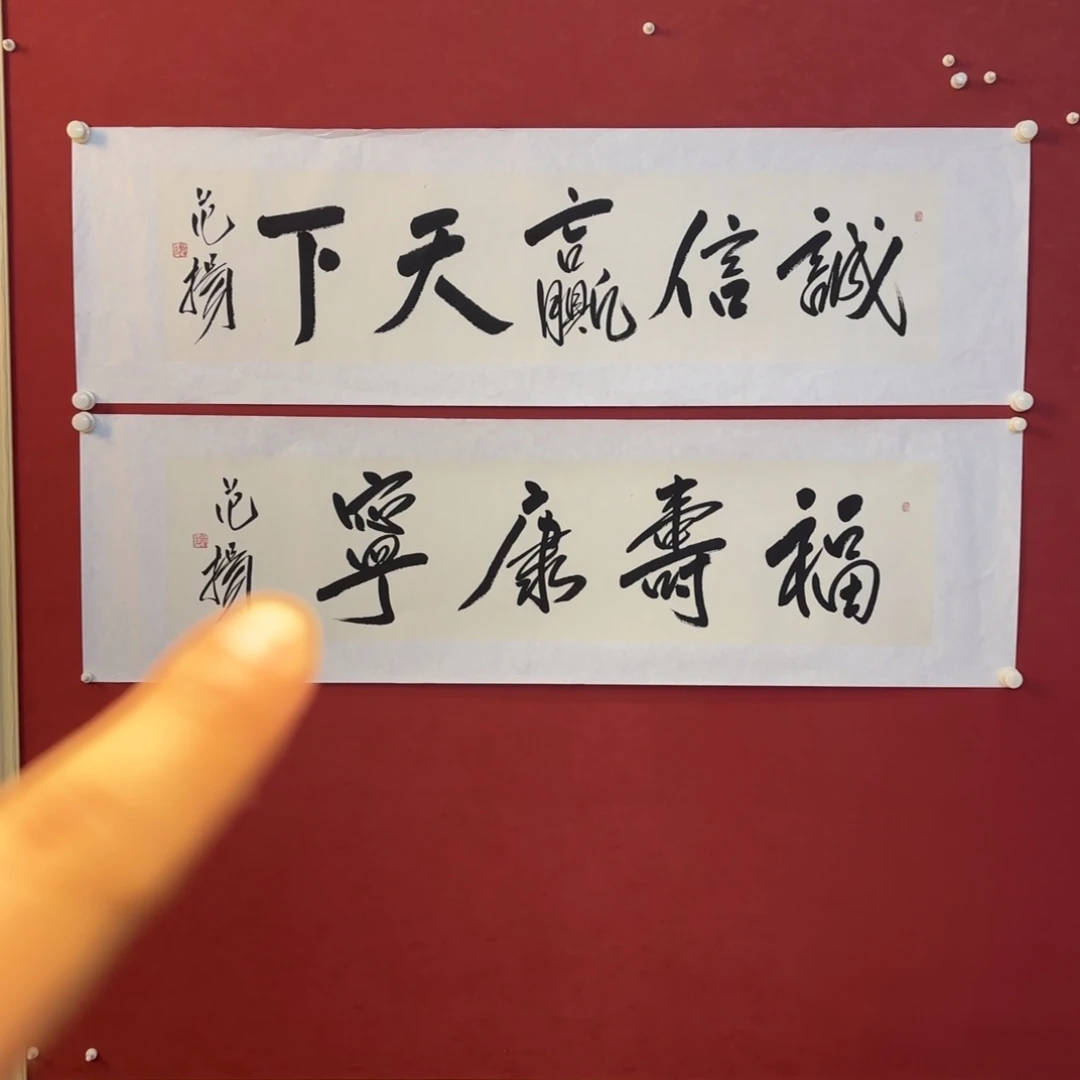 誠信贏天下
范揚
福壽康寧
范揚